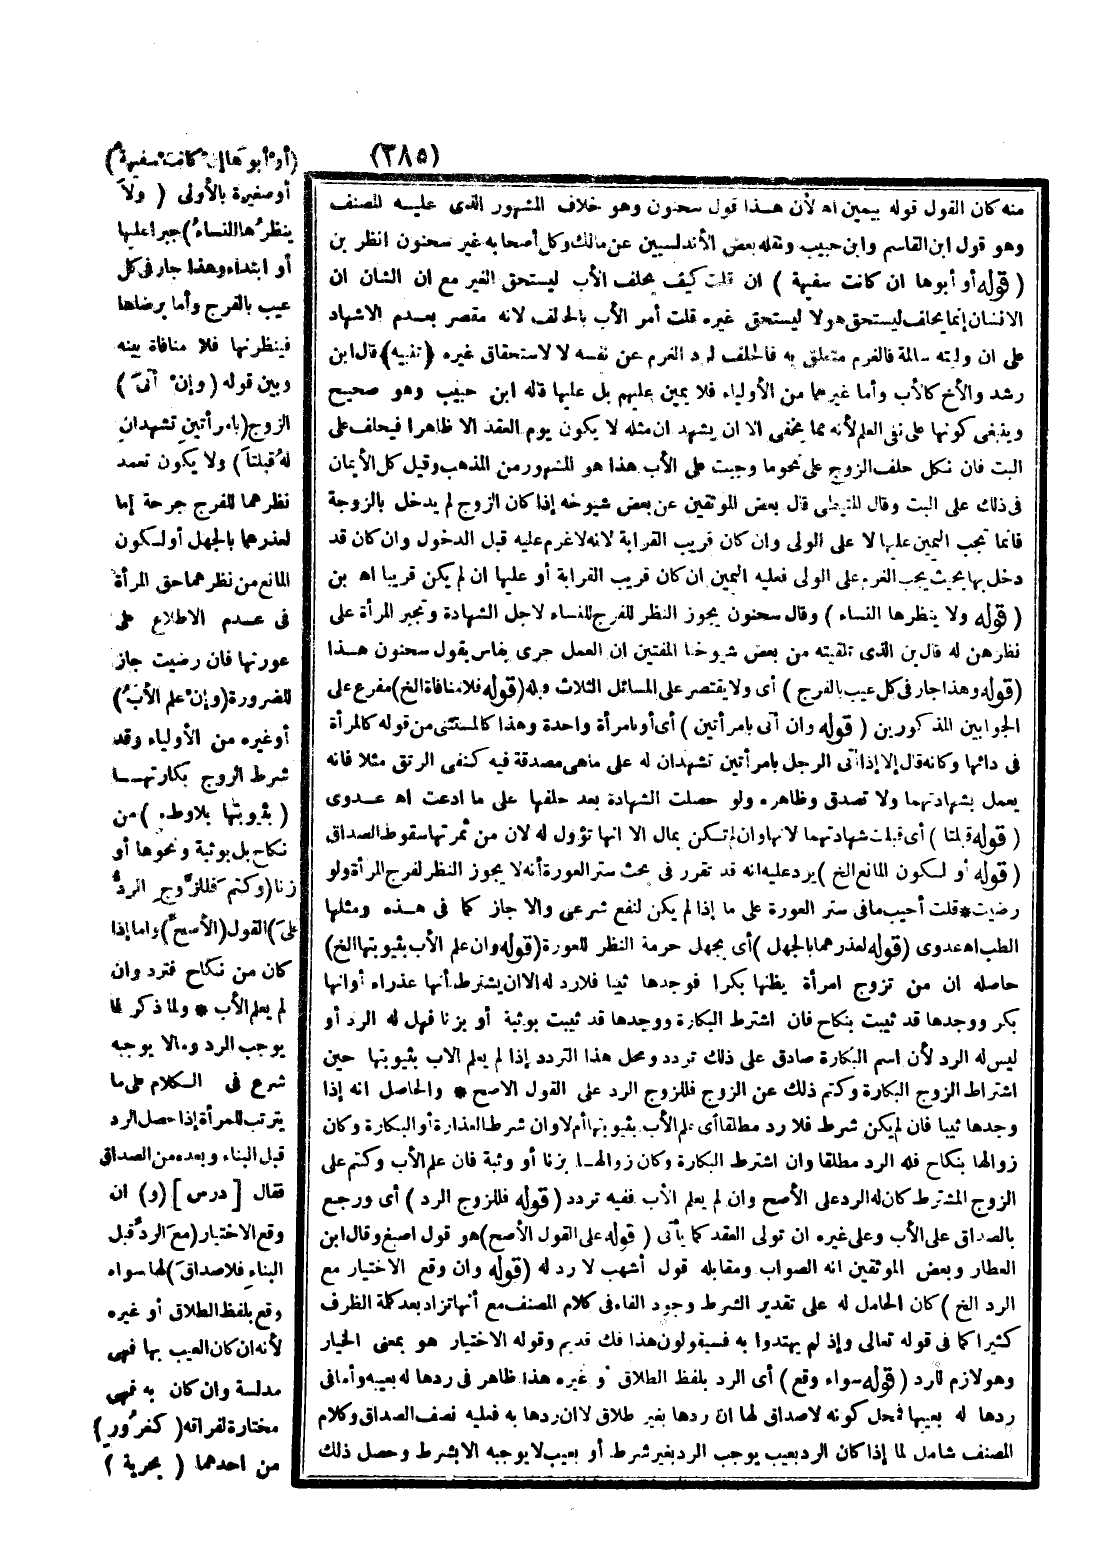 (٣٨٥)
(أو أبوها إن كانت سفيهة)
أو صغيرة بالأولى ( ولا
ينظرُها النساءُ) جبرا عليها
أو ابتداء وهذا جار فى كل
عيب بالفرج وأما برضاها
فينظرنها فلا منافاة بينه
وبين قوله (وإنْ أتىَ)
الزوج(بامرأتينِ تشهدانِ
لهُ قبلتاَ) ولا يكون تعمد
نظرهما للفرج جرحة إما
لعذرهما بالجهل أو لكون
المانع من نظرهما حق المرأة
فى عدم الاطلاع على
عورتها فان رضيت جاز
للضرورة(وإنْ علم الأبُ)
أو غيره من الأولياء وقد
شرط الزوج بكارتها
( بثيوبتها بلاوطء ) من
نكاح بل بوثبة ونحوها أو
زنا(وكتم فللزَّوجِ الردُّ
علىَ)القول(الأصحِّ)واما إذا
كان من نكاح فترد وان
لم يعلم الأب * ولما ذكر ما
يوجب الرد وما لا يوجبه
شرع فى الكلام على ما
يترتب للمرأة إذا حصل الرد
قبل البناء وبعده من الصداق
فقال [درس] (و) ان
وقع الاختيار(معَ الردِّ قبل
البناءِ فلاصداقَ)لها سواء
وقع بلفظ الطلاق أو غيره
لأنه ان كان العيب بها فهى
مدلسة وان كان به فهى
مختارة لفراقه( كغرُورٍ )
من احدهما ( بحرية )
منه كان القول قوله بيمين اه لأن هذا قول سحنون وهو خلاف المشهور الذى عليه المصنف
وهو قول ابن القاسم وابن حبيب ونقله بعض الأندلسيين عن مالك وكل أصحابه غير سحنون انظر بن
( قوله أو أبوها ان كانت سفيهة ) ان قلت كيف يحلف الأب ليستحق الغير مع ان الشان ان
الانسان إنما يحلف ليستحق هو لا ليستحق غيره قلت أمر الأب بالحلف لانه مقصر بعدم الاشهاد
على ان وليته سالمة فالغرم متعلق به فالحلف لرد الغرم عن نفسه لا لاستحقاق غيره (تنبيه) قال ابن
رشد والأخ كالأب وأما غيرهما من الأولياء فلا يمين عليهم بل عليها قاله ابن حبيب وهو صحيح
وينبغى كونها على نفى العلم لأنه مما يخفى الا ان يشهد ان مثله لا يكون يوم العقد الا ظاهرا فيحلف على
البت فان نكل حلف الزوج على نحو ما وجبت على الأب هذا هو المشهور من المذهب وقيل كل الأيمان
فى ذلك على البت وقال المتيطى قال بعض الموثقين عن بعض شيوخه إذا كان الزوج لم يدخل بالزوجة
فانما تجب اليمين عليها لا على الولى وان كان قريب القرابة لانه لاغرم عليه قبل الدخول وان كان قد
دخل بها بحيث يجب الغرم على الولى فعليه اليمين ان كان قريب القرابة أو عليها ان لم يكن قريبا اه بن
( قوله ولا ينظرها النساء ) وقال سحنون يجوز النظر للفرج للنساء لاجل الشهادة وتجبر المرأة على
نظرهن له قال بن الذى تلقيته من بعض شيوخنا المفتين ان العمل جرى بفاس بقول سحنون هذا
(قوله وهذا جار فى كل عيب بالفرج ) أى ولا يقتصر على المسائل الثلاث وبله (قوله فلا منافاة الخ)مفرع على
الجوابين المذكورين ( قوله وان أتى بامرأتين ) أى أو بامرأة واحدة وهذا كالمستثنى من قوله كالمرأة
فى دائها وكانه قال إلا إذا أتى الرجل بامرأتين تشهدان له على ما هى مصدقة فيه كنفى الرتق مثلا فانه
يعمل بشهادتهما ولا تصدق وظاهره ولو حصلت الشهادة بعد حلفها على ما ادعت اه عدوى
( قوله قبلتا ) أى قبلت شهادتهما لانها وان لم تكن بمال الا انها تؤول له لان من ثمرتها سقوط الصداق
( قوله أو لكون المانع الخ ) يرد عليه انه قد تقرر فى بحث ستر العورة أنه لا يجوز النظر لفرج المرأة ولو
رضيت * قلت أجيب ما فى ستر العورة على ما إذا لم يكن لنفع شرعى والا جاز كما فى هذه ومثلها
الطب اه عدوى (قوله لعذرهما بالجهل ) أى بجهل حرمة النظر للعورة (قوله وان علم الأب بثيوبتها الخ)
حاصله ان من تزوج امرأة يظنها بكرا فوجدها ثيبا فلارد له الا ان يشترط أنها عذراء أو انها
بكر ووجدها قد ثيبت بنكاح فان اشترط البكارة ووجدها قد ثيبت بوثبة أو بزنا فهل له الرد أو
ليس له الرد لأن اسم البكارة صادق على ذلك تردد ومحل هذا التردد إذا لم يعلم الاب بثيوبتها حين
اشتراط الزوج البكارة وكتم ذلك عن الزوج فللزوج الرد على القول الاصح * والحاصل انه إذا
وجدها ثيبا فان لم يكن شرط فلا رد مطلقا أى علم الأب بثيوبتها أم لا وان شرط العذارة أو البكارة وكان
زوالها بنكاح فله الرد مطلقا وان اشترط البكارة وكان زوالها بزنا أو وثبة فان علم الأب وكتم على
الزوج المشترط كان له الرد على الأصح وان لم يعلم الأب ففيه تردد ( قوله فللزوج الرد ) أى ورجع
بالصداق على الأب وعلى غيره ان تولى العقد كما يأتى ( قوله على القول الأصح)هو قول اصبغ وقال ابن
العطار وبعض الموثقين انه الصواب ومقابله قول أشهب لا رد له (قوله وان وقع الاختيار مع
الرد الخ ) كان الحامل له على تقدير الشرط وجود الفاء فى كلام المصنف مع أنها تزاد بعد كلمة الظرف
كثيرا كما فى قوله تعالى وإذ لم يهتدوا به فسيقولون هذا فك قديم وقوله الاختيار هو بمعنى الخيار
وهو لازم للرد (قوله سواء وقع ) أى الرد بلفظ الطلاق أو غيره هذا ظاهر فى ردها له بعيبه وأما فى
ردها له بعيبها فمحل كونه لاصداق لها ان ردها بغير طلاق لا ان ردها به فعليه نصف الصداق وكلام
المصنف شامل لما إذا كان الرد بعيب يوجب الرد بغير شرط أو بعيب لا يوجبه الا بشرط وحصل ذلك